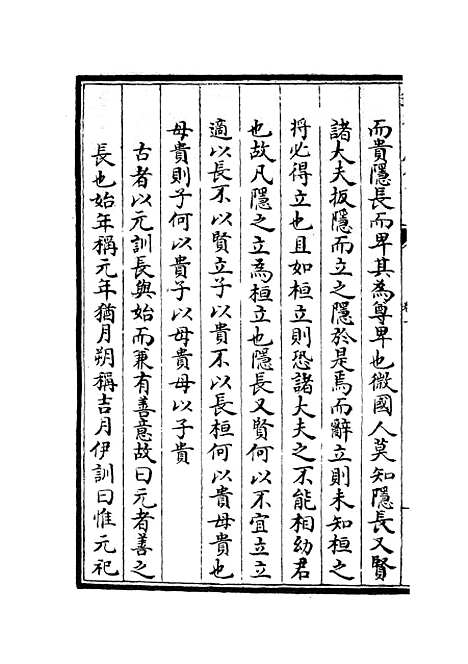 而貴隱長而卑其為尊卑也微國人莫知隱長又賢
諸大夫扳隱而立之隱於是焉而辭立則未知桓之
将必得立也且如桓立則恐諸大夫之不能相幼君
也故凡隱之立為桓立也隱長又賢何以不宜立立
適以長不以賢立子以貴不以長桓何以貴母貴也
母貴則子何以貴子以母貴母以子貴
古者以元訓長與始而兼有善意故曰元者善之
長也始年稱元年猶月朔稱吉月伊訓曰惟元祀